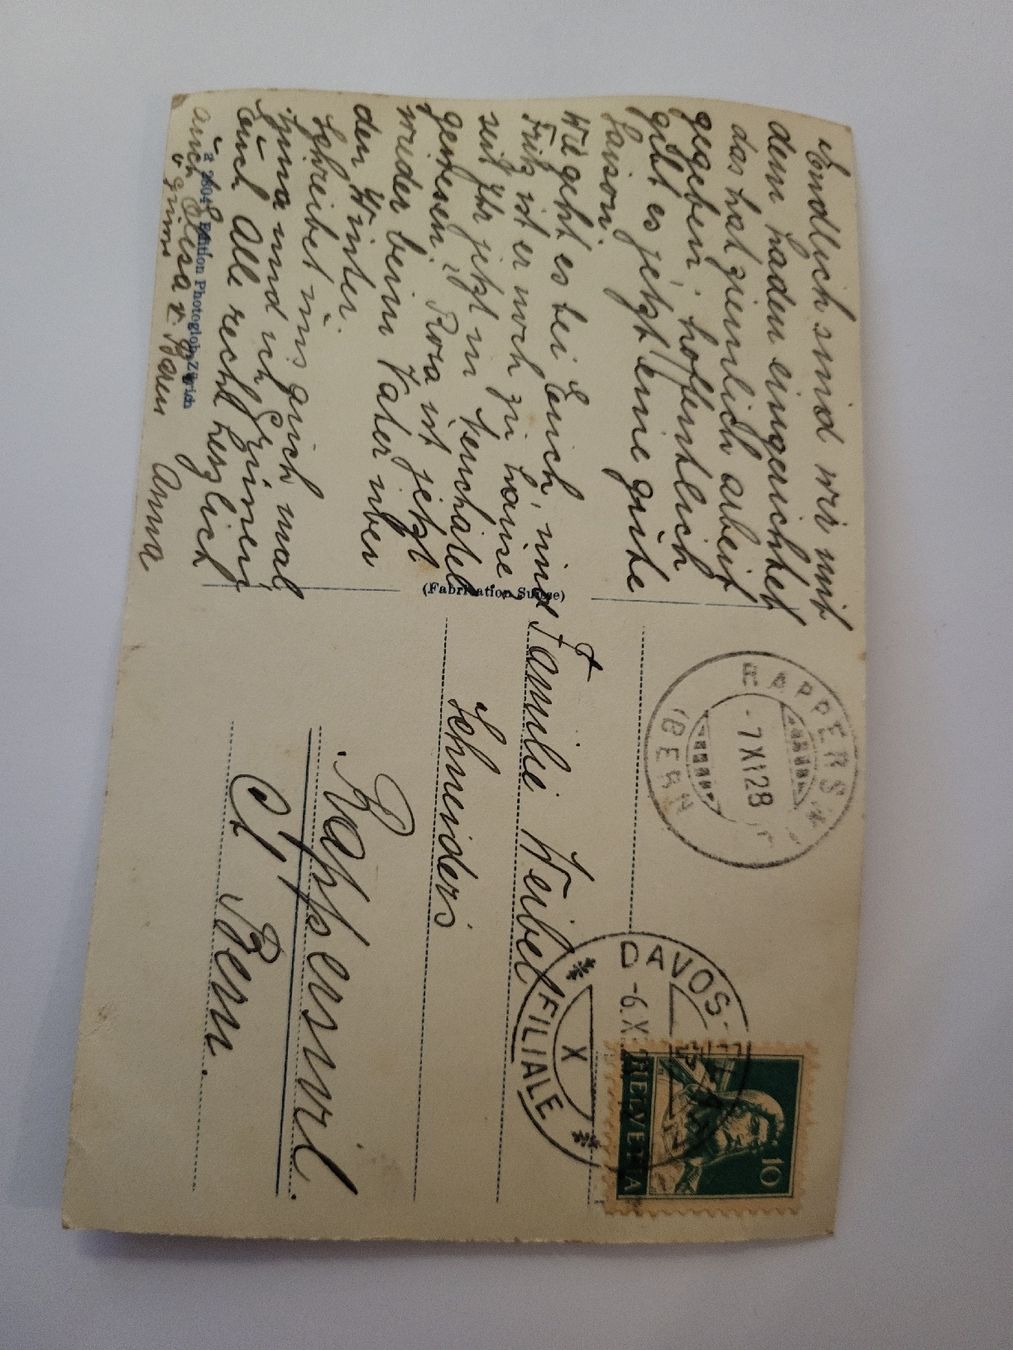 Endlich sind wir mit
dem Laden eingerichtet
das hat ziemlich arbeit
gegeben, hoffentlich
gibt es jetzt eine gute
Saison.
Wie geht es bei Euch, und
Fritz ist er noch zu hause
seit Ihr jetzt in Neuchâtel
gewesen. Rosa ist jetzt
wieder beim Vater über
den Winter.
Schreibet uns auch mal
und ich Grüssen
Euch Alle recht herzlich
auch Elisa
Anna
a 2604 Edition Photoglob Zürich
(Fabrication Suisse)
RAPPERSWIL
-7 XI 28
(BERN)
DAVOS-PLATZ
-6.X
X
FILIALE
HELVETIA
10
Familie Weibel
Schneiders
Rapperswil.
Ct. Bern.